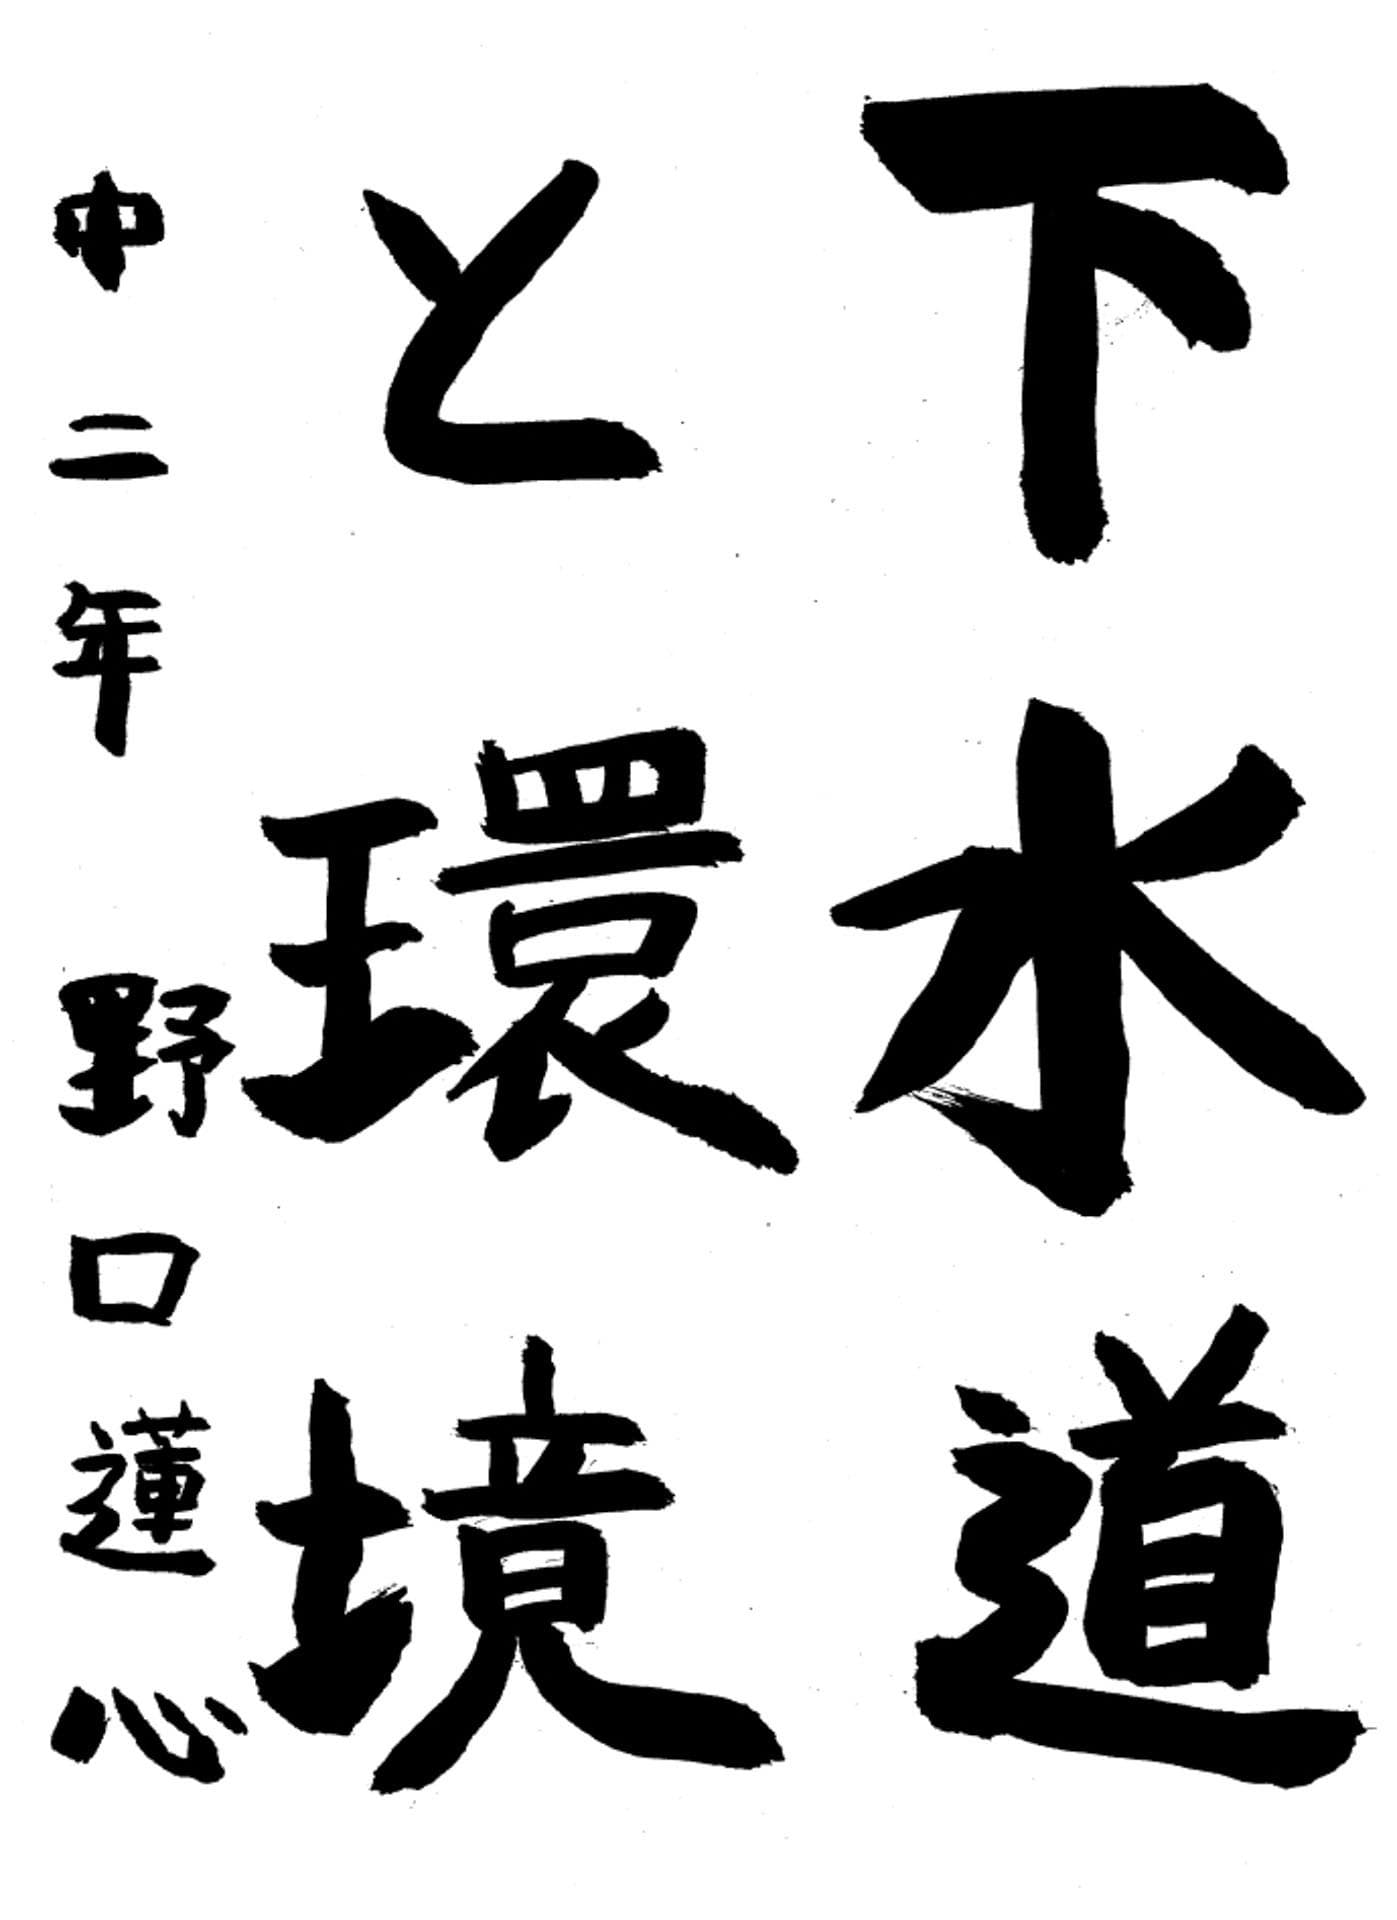 下水道
と環境
中二年 野口蓮心